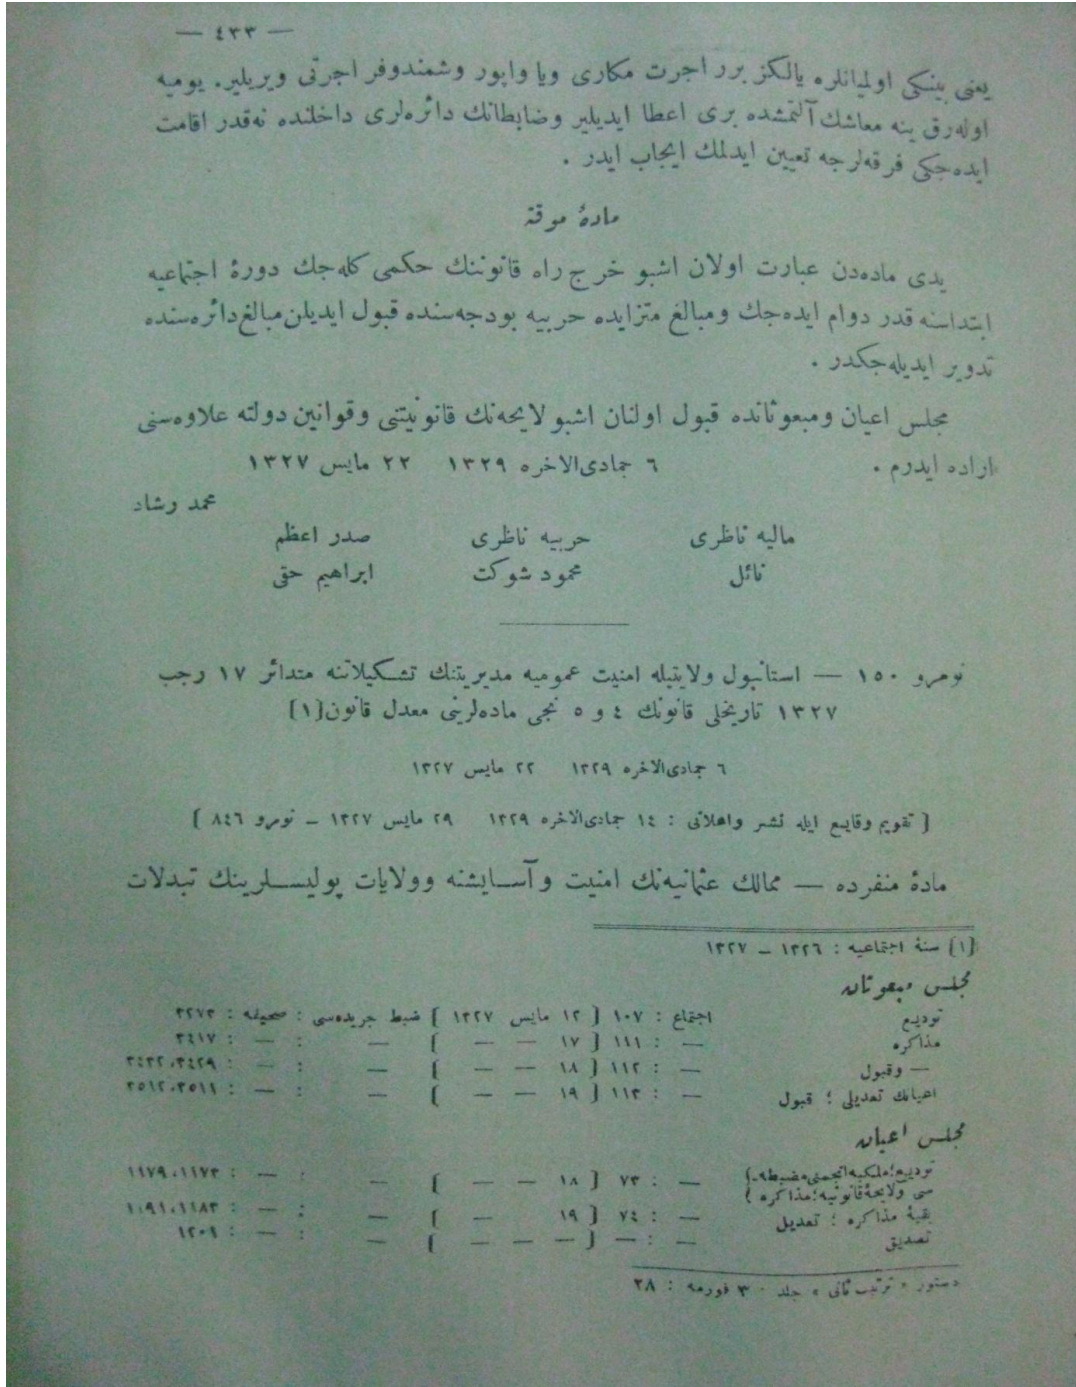 — ٤٣٣ —
يعنى بينكى اولميانلره يالكز برر اجرت مكارى ويا واپور وشمندوفر اجرتى ويريلير. يوميه
اوله‌رق ينه معاشك آلتمشده برى اعطا ايديلير وضابطانك دائره‌لرى داخلنده نه‌قدر اقامت
ايده‌جكى فرقه‌لرجه تعيين ايدلمك ايجاب ايدر .
مادهٔ موقته
يدى ماده‌دن عبارت اولان اشبو خرج راه قانوننك حكمى كله‌جك دورهٔ اجتماعيه
ابتداسنه قدر دوام ايده‌جك ومبالغ متزايده حربيه بودجه‌سنده قبول ايديلن مبالغ دائره‌سنده
تدوير ايديله‌جكدر .
مجلس اعيان ومبعوثانده قبول اولنان اشبو لايحه‌نك قانونيتنى وقوانين دولته علاوه‌سنى
اراده ايدرم . ٦ جمادى‌الاخره ١٣٢٩ ٢٢ مايس ١٣٢٧
محمد رشاد
ماليه ناظرى حربيه ناظرى صدر اعظم
نائل محمود شوكت ابراهيم حقى
نومرو ١٥٠ — استانبول ولايتيله امنيت عموميه مديريتنك تشكيلاتنه متدائر ١٧ رجب
١٣٢٧ تاريخلى قانونك ٤ و ٥ نجى ماده‌لرينى معدل قانون[١]
٦ جمادى‌الاخره ١٣٢٩ ٢٢ مايس ١٣٢٧
[ تقويم وقايع ايله نشر واعلانى : ١٤ جمادى‌الاخره ١٣٢٩ ٢٩ مايس ١٣٢٧ – نومرو ٨٤٦ ]
مادهٔ منفرده — ممالك عثمانيه‌نك امنيت و آسايشنه وولايات پوليسلرينك تبدلات
[١] سنهٔ اجتماعيه : ١٣٢٦ – ١٣٢٧
مجلس مبعوثان
توديع اجتماع : ١٠٧ [ ١٢ مايس ١٣٢٧ ] ضبط جريده‌سى : صحيفه : ٣٢٧٣
مذاكره — : ١١١ [ ١٧ — — ] — : — : ٣٤١٧
— وقبول — : ١١٢ [ ١٨ — — ] — : — : ٣٤٢٩،٣٤٣٢
اعيانك تعديلى ؛ قبول — : ١١٣ [ ١٩ — — ] — : — : ٣٥١١،٣٥١٢
مجلس اعيان
توديع؛ ملكيه انجمنى مضبطه‌- } — : ٧٣ [ ١٨ — — ] — : — : ١١٧٣،١١٧٩
سى ولايحهٔ قانونيه؛ مذاكره }
بقيهٔ مذاكره ؛ تعديل — : ٧٤ [ ١٩ — ] — : — :
تصديق — : — [ — — — ] — : — : ١٢٠٦
دستور « ترتيب ثانى » جلد ٣٠ فورمه : ٢٨